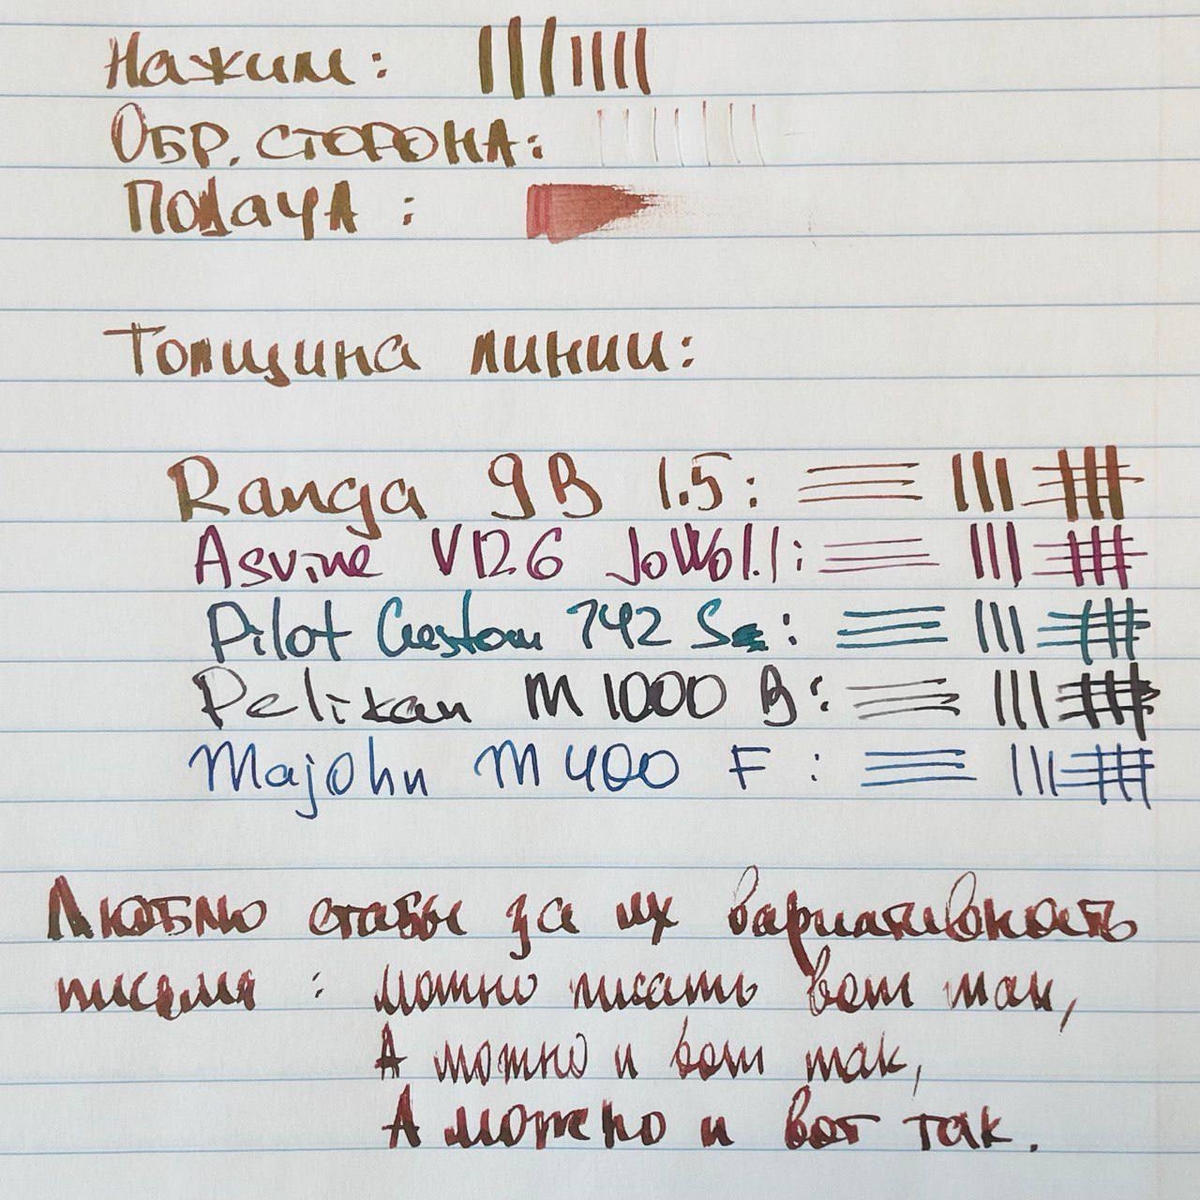 Нажим:
Обр. сторона:
Подача:
Толщина линии:
Ranga 9B 1.5:
Asvine V126 JoWo 1.1:
Pilot Custom 742 :
Pelikan M1000 B:
Majohn M400 F:
Люблю стабы за их вариативность
письма: можно писать вот так,
А можно и вот так,
А можно и вот так.